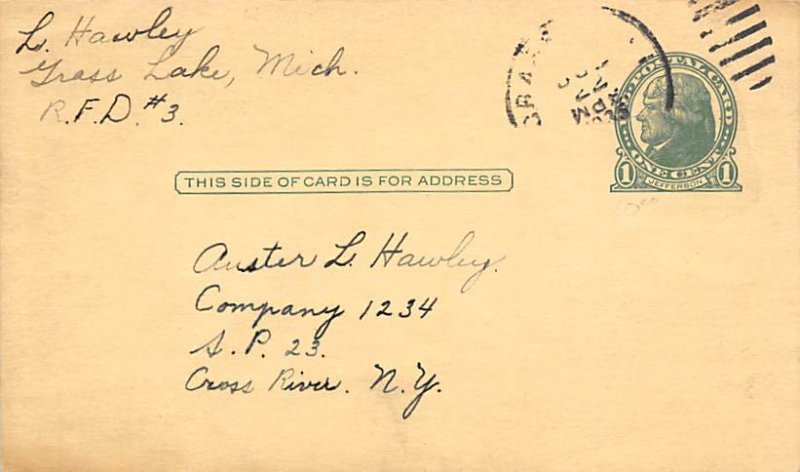 L. Hawley
Grass Lake, Mich.
R.F.D. #3.
U.S. POSTAL CARD
1 ONE CENT 1
JEFFERSON
THIS SIDE OF CARD IS FOR ADDRESS
Auster L. Hawley.
Company 1234
S.P. 23.
Cross River. N.Y.